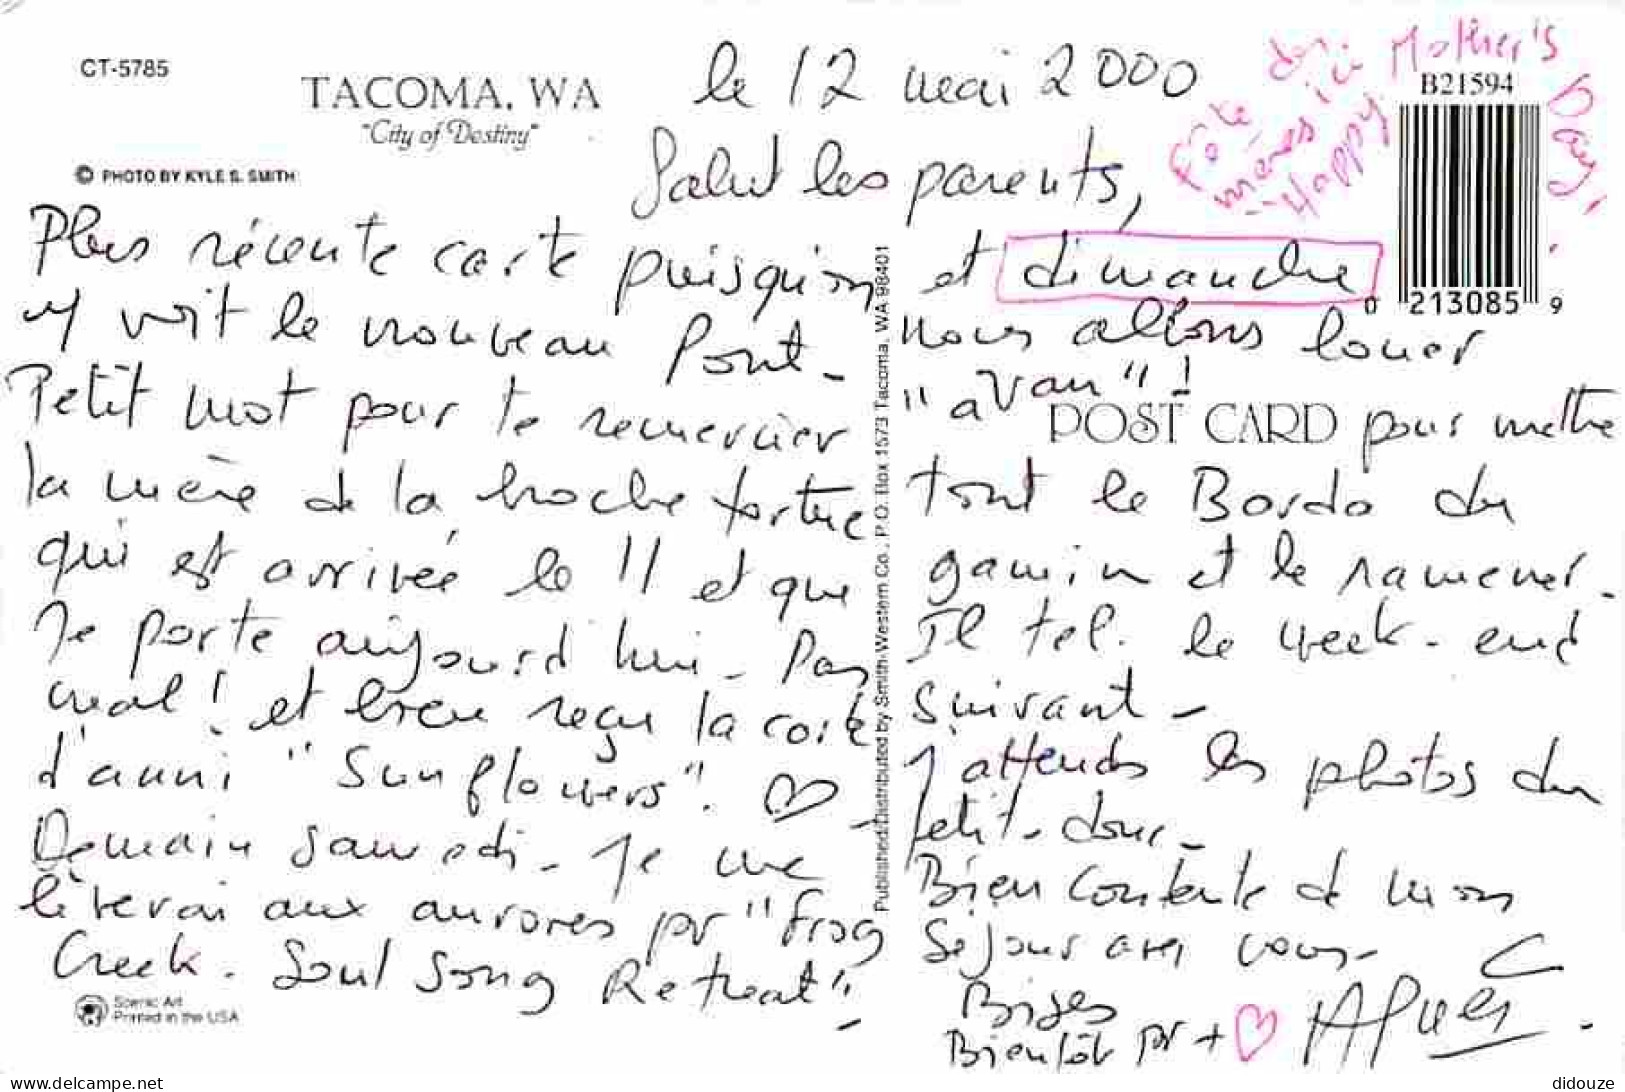 CT-5785
TACOMA, WA
"City of Destiny"
© PHOTO BY KYLE S. SMITH
le 12 mai 2000
Salut les parents,
Plus récente carte puisqu'on
y voit le nouveau Pont-
Petit mot pour te remercier
la mère de la broche tortue
qui est arrivée le 11 et que
Je porte aujourd'hui - Pas
mal ! et bien reçu la carte
d'anni "Sunflowers". ♡
Demain samedi - Je me
lèverai aux aurores pr "Frog
Creek. Soul Song Retreat" -
Scenic Art
Printed in the USA
Published/Distributed by Smith-Western Co., P.O. Box 1573 Tacoma, WA 98401
Fête des
mères ici
Happy Mother's Day!
B21594
0 213085 9
et dimanche
nous allons louer
"a Van" !
POST CARD
pour mettre
tout le Bordo du
gamin et le ramener.
Il tel. le week-end
suivant -
J'attends les photos du
petit-
Bien contente de mon
Séjour avec vous -
Bises
Bientôt pr + ♡
Agnes
didouze
www.delcampe.net